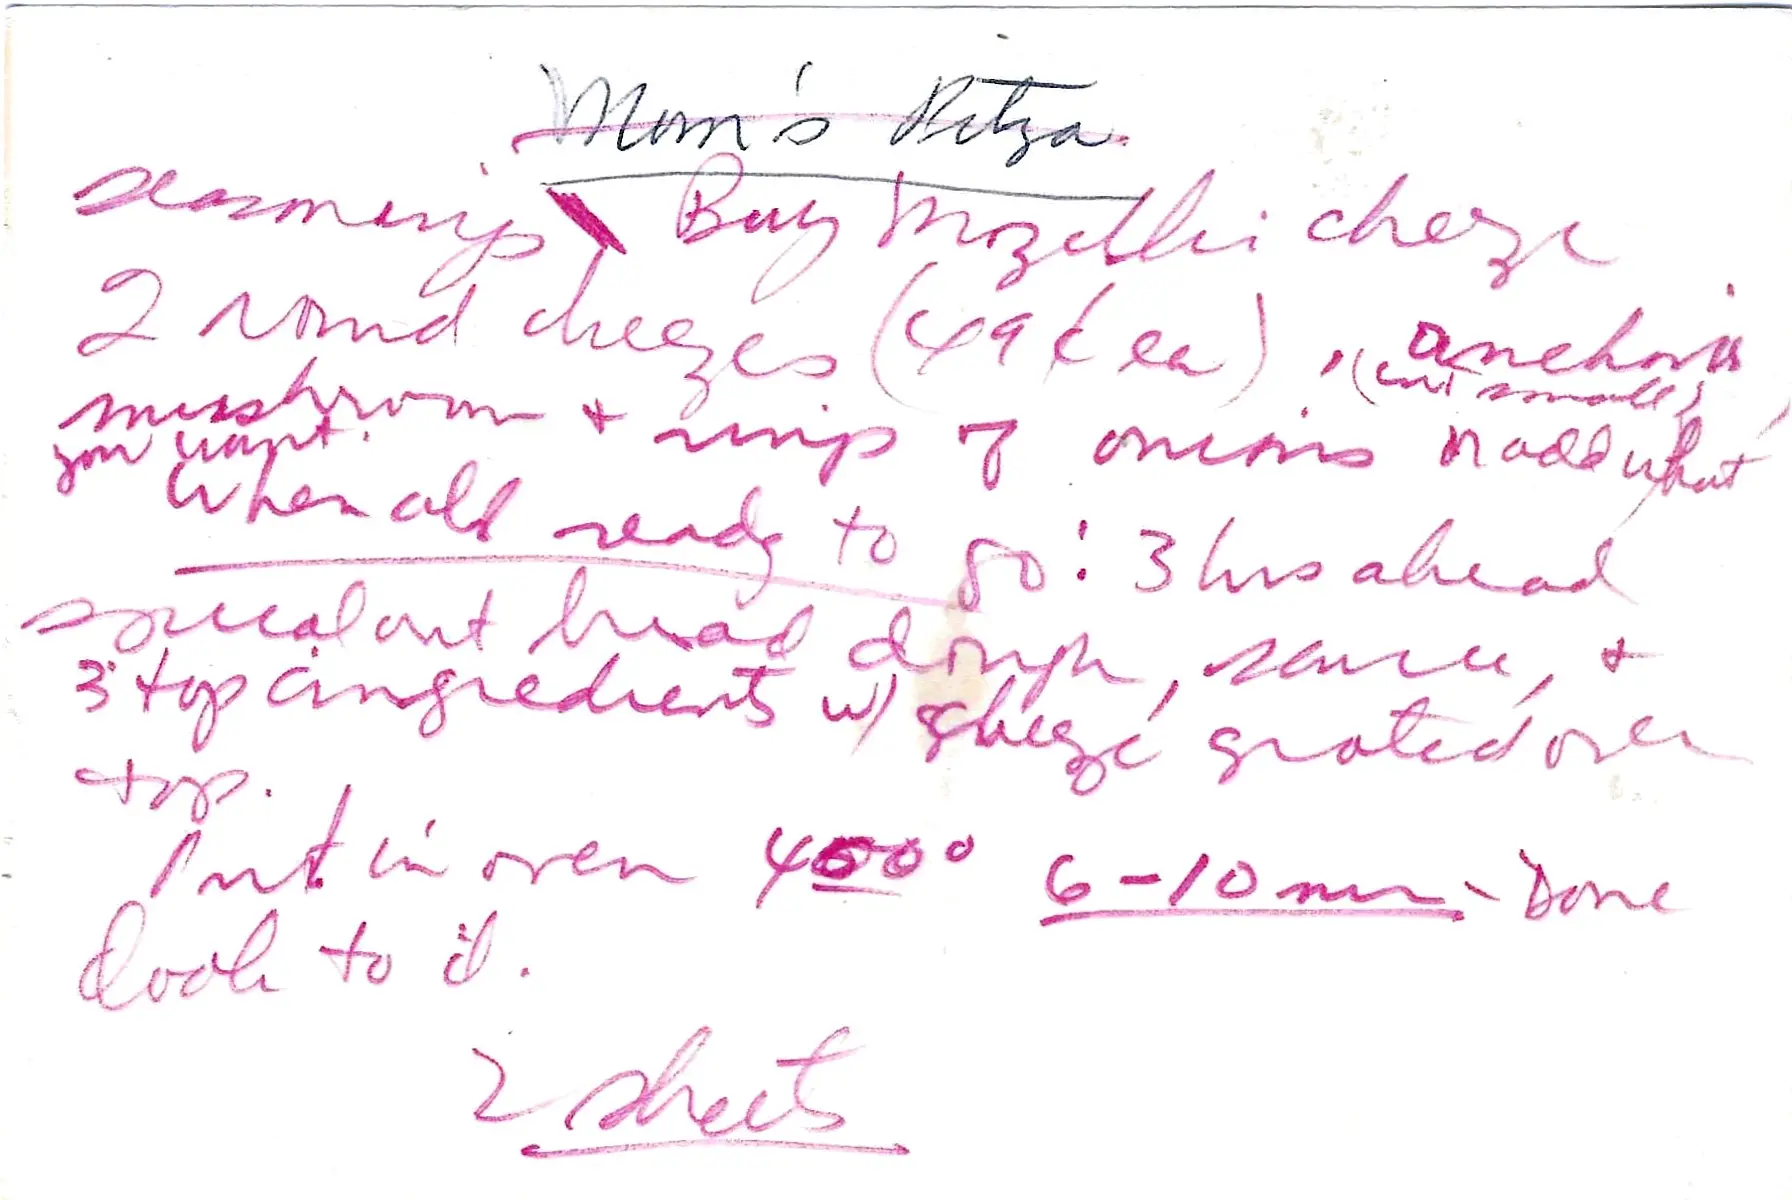 Mom's Pitza
seasonings Buy Mozelli cheeze
2 round cheezes (49¢ ea), anchovies
(cut small)
mushroom + rings of onions or add what
you want.
When all ready to go: 3 hrs ahead
spread out bread dough, sauce, +
3 top ingredients w/ cheeze grated over
top.
Put in oven 400° 6-10 min - Done
Look to it.
2 sheets